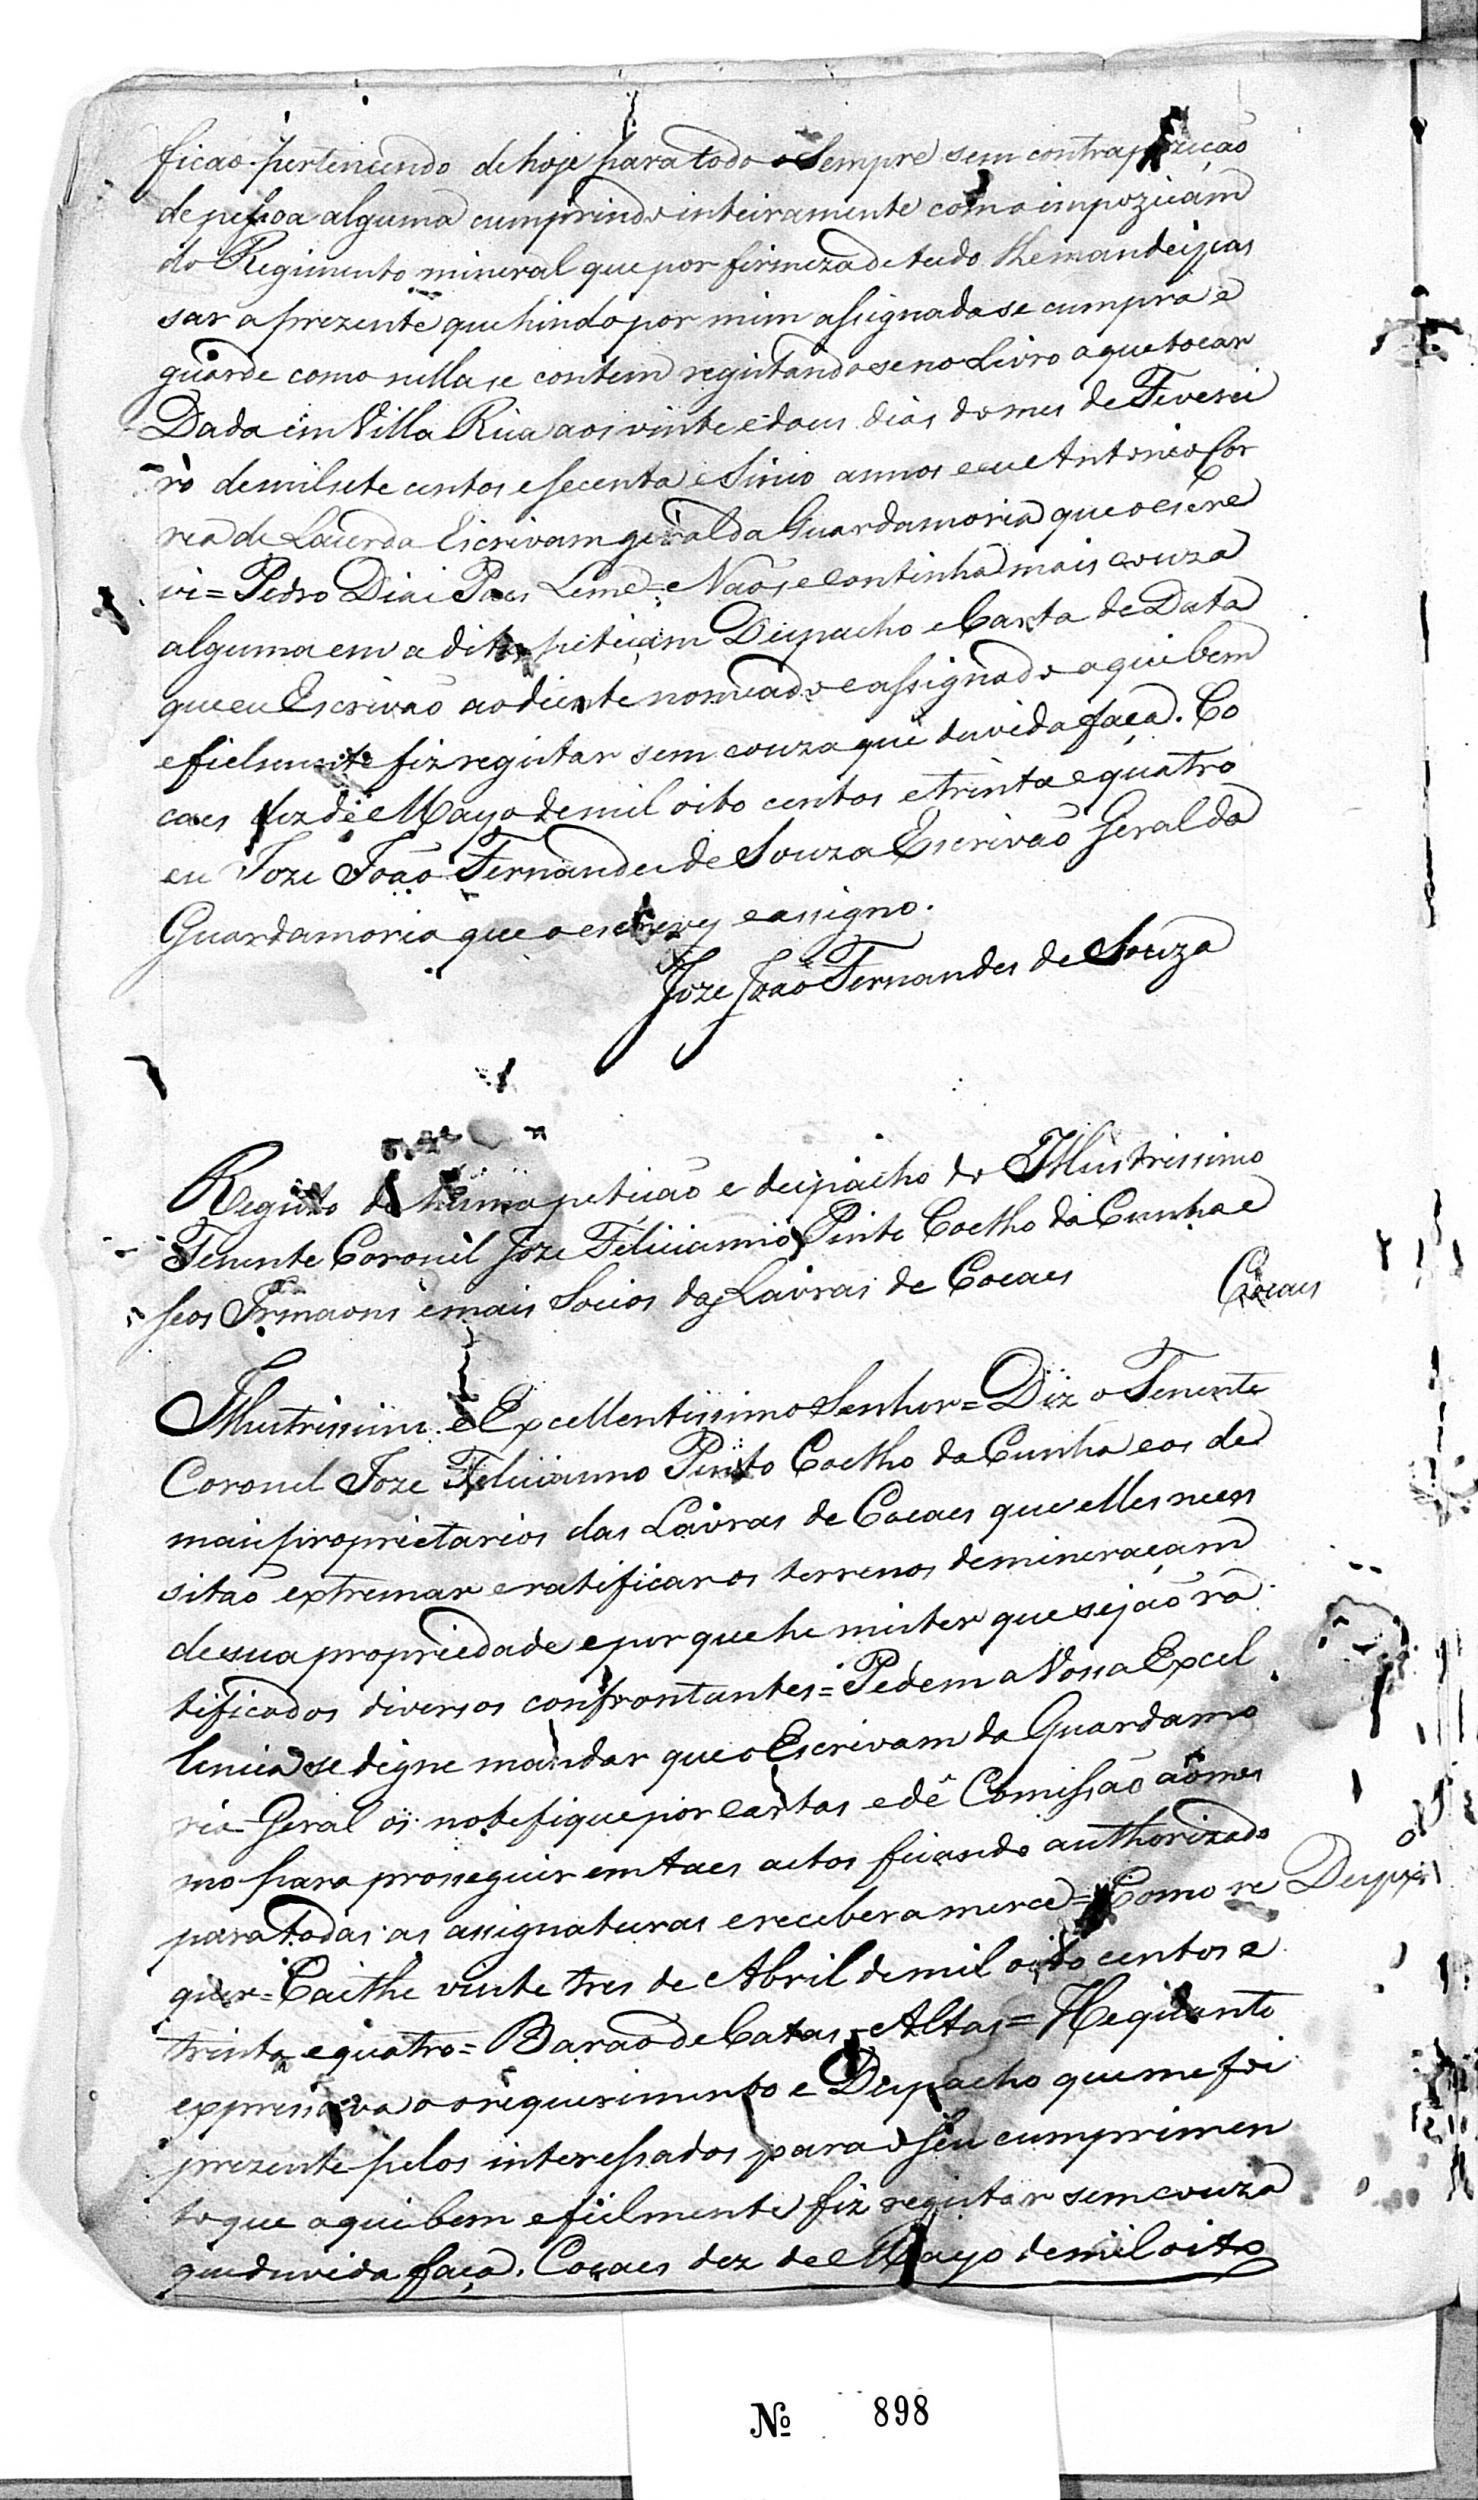 ficao pertencendo de hoje para todo o Sempre sem contrapozição
de pessoa alguma cumprindo inteiramente com o impozicám
do Regimento mineral que por firmeza de tudo lhe mandei pas
sar a prezente que hindo por mim assignada se cumpra e
guarde como nella se contem registando se no Livro a que tocar
Dada em Villa Rica aos vinte e dous dias do mes de Feverei
ro de mil sete centos e secenta e Sinco annos e eu Antonio Cor
rea de Lacerda Escrivam geral da Guardamoria que o escre
vi = Pedro Dias Paes Leme = Não se continha mais couza
alguma em a dita peticam Despacho e Carta de Data
que eu Escrivão ao diente nomeado e assignado aqui bem
e fielmente fiz registar sem couza que duvida faça. Co
caes dez de Mayo de mil oito centos e trinta e quatro
eu Joze João Fernandes de Souza Escrivão Geral da
Guardamoria que o escrevy e assigno.
Joze João Fernandes de Souza
Registo de huma petição e despacho do Illustrissimo
Tenente Coronel Joze Felicianno Pinto Coelho da Cunha e
seos Irmaons e mais Socios das Lavras de Cocaes
Cocaes
Illustrissimo e Excellentissimo Senhor = Diz o Tenente
Coronel Joze Felicianno Pinto Coelho da Cunha e os de
mais proprietarios das Lavras de Cocaes que elles neces
sitão extremar e ratificar os terrenos de mineraçam
de sua propriedade e por que he mister que sejão ra
tificados diversos confrontantes = Pedem a Vossa Excel
lencia se digne mandar que o Escrivam da Guardamo
ria Geral os notefique por cartas e dê Comissão ao mes
mo para proseguir em taes actos ficando authorizado
para todas as assignaturas e recebera merce = Como re
Despº
quer = Caithe vinte tres de Abril de mil oito centos e
trinta e quatro = Barão de Catas Altas = He quanto
expressava o requerimento e Despacho que me foi
prezente pelos interessados para o seu cumprimen
to que aqui bem e fielmente fiz registar sem couza
que duvida faça. Cocaes dez de Mayo de mil oito
Nº 898